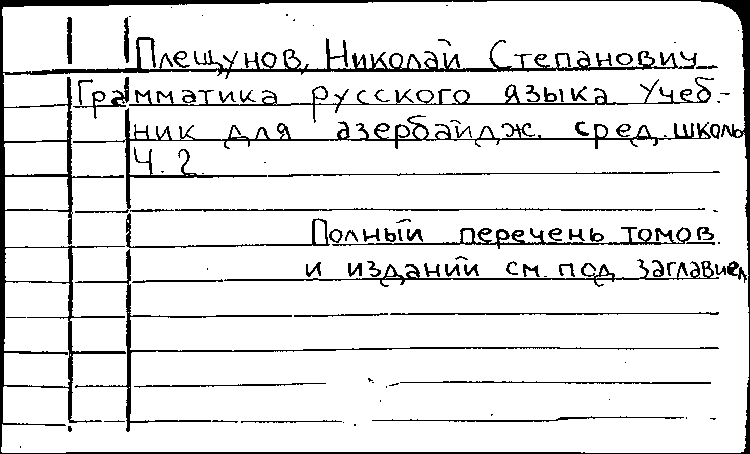 Плещунов, Николай Степанович
Грамматика русского языка Учеб.-
ник для азербайдж. сред. школы
Ч. 2.
Полный перечень томов
и изданий см. под заглавием